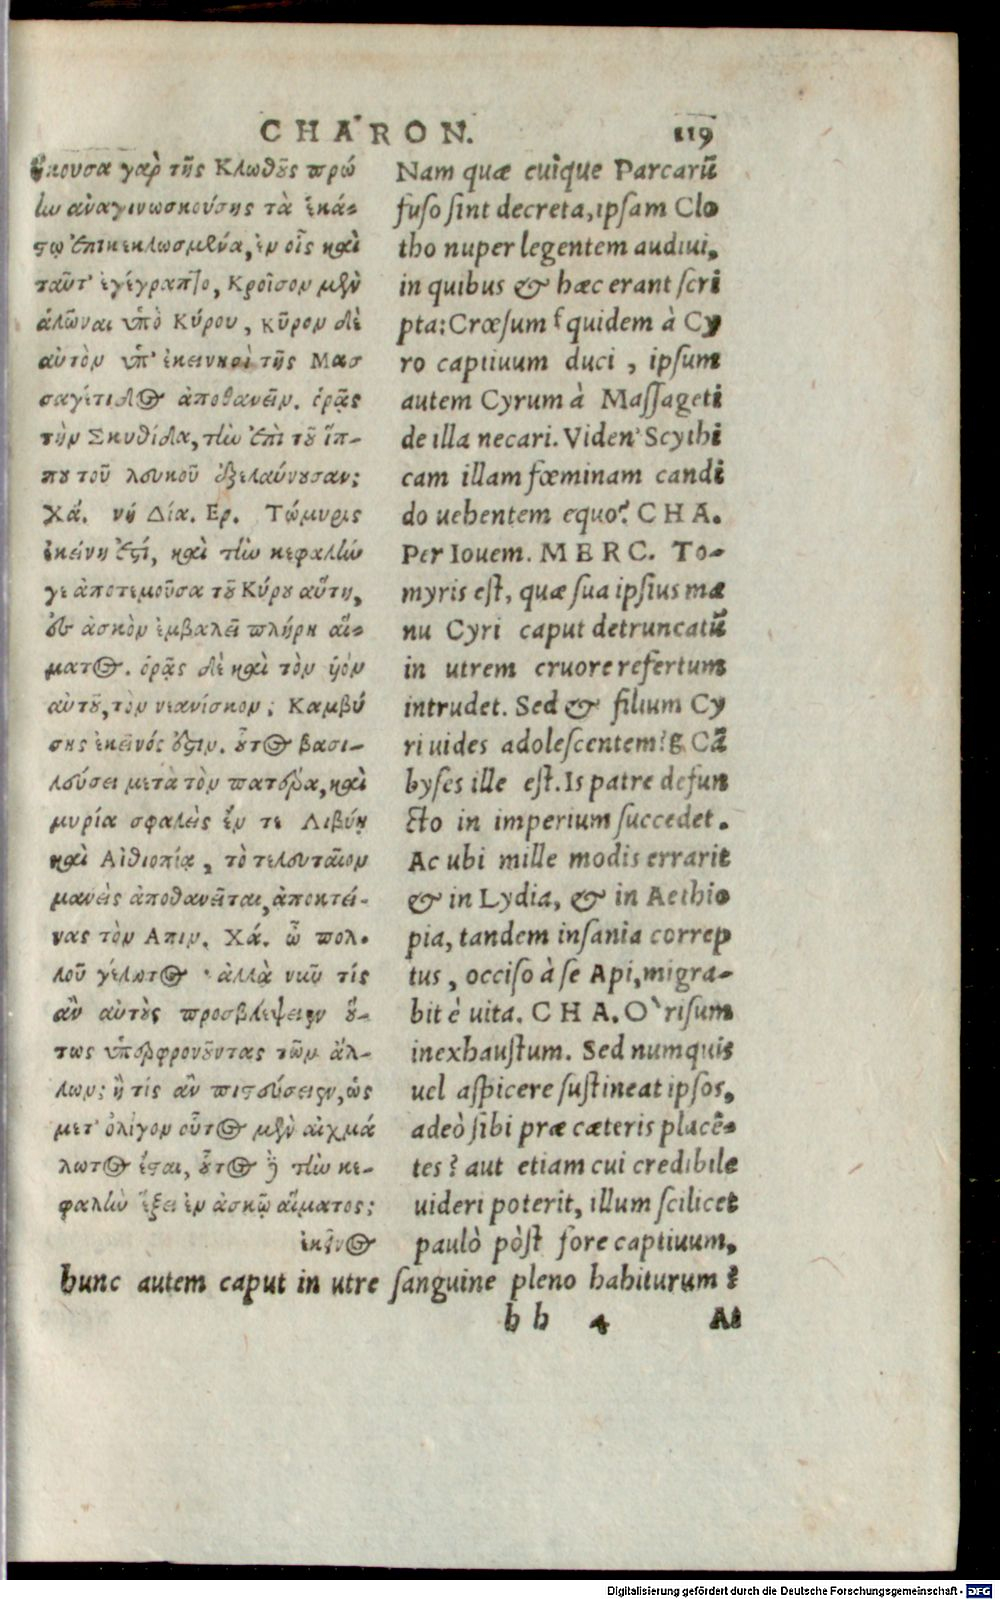 CHARON. 119
ἤκουσα γὰρ τῆς Κλωθοῦς πρώ
ίω ἀναγινωσκούσης τὰ ἑκά-
στῳ ἐπικεκλωσμένα, ἐν οἷς καὶ
ταῦτ' ἐγέγραπτο, Κροῖσον μὲν
ἁλῶναι ὑπὸ Κύρου, κῦρον δὲ
αὐτὸν ὑπ' ἐκεινηοὶ τῆς Μασ
σαγέτιδος ἀποθανεῖν. ὁρᾷς
τὴν Σκυθίδα, τὴν ἐπὶ τοῦ ἵπ-
που τοῦ λευκοῦ ἐξελαύνουσαν;
Χά. νὴ Δία. Ερ. Τώμυρις
ἐκείνη ἐστί, καὶ τὴν κεφαλήν
γε ἀποτεμοῦσα τοῦ Κύρου αὕτη,
ἐς ἀσκὸν ἐμβαλεῖ πλήρη αἵ-
ματος. ὁρᾷς δὲ καὶ τὸν ὑὸν
αὐτοῦ, τὸν νεανίσκον; Καμβύ
σης ἐκεῖνός ἐστιν. οὗτος βασι-
λεύσει μετὰ τὸν πατέρα, καὶ
μυρία σφαλεὶς ἔν τε Λιβύῃ
καὶ Αἰθιοπίᾳ, τὸ τελευταῖον
μανεὶς ἀποθανεῖται, ἀποκτεί-
νας τὸν Απιν. Χά. ὦ πολ-
λοῦ γέλωτος. ἀλλὰ νῦν τίς
ἂν αὐτοὺς προσβλέψειεν οὕ-
τως ὑπερφρονοῦντας τῶν ἄλ-
λων; ἢ τίς ἂν πιστεύσειεν, ὡς
μετ' ὀλίγον οὗτος μὲν αἰχμά
λωτος ἔσται, οὗτος δὲ τὴν κε-
φαλὴν ἕξει ἐν ἀσκῷ αἵματος;
ἐκεῖνος
Nam quæ cuìque Parcarũ
fuso sint decreta, ipsam Clo
tho nuper legentem audiui,
in quibus & hæc erant scri
pta: Crœsum f quidem à Cy
ro captiuum duci, ipsum
autem Cyrum à Massageti
de illa necari. Viden' Scythi
cam illam fœminam candi
do uehentem equo? CHA.
Per Iouem. MERC. To-
myris est, quæ sua ipsius ma
nu Cyri caput detruncatũ
in utrem cruore refertum
intrudet. Sed & filium Cy
ri uides adolescentem? g Cã
byses ille est. Is patre defun
cto in imperium succedet.
Ac ubi mille modis errarit
& in Lydia, & in Aethio
pia, tandem insania correp
tus, occiso à se Api, migra-
bit è uita. CHA. O` risum
inexhaustum. Sed numquis
uel aspicere sustineat ipsos,
adeò sibi præ cæteris placẽ-
tes? aut etiam cui credibile
uideri poterit, illum scilicet
paulò pòst fore captiuum,
hunc autem caput in utre sanguine pleno habiturum?
bb 4 At
Digitalisierung gefördert durch die Deutsche Forschungsgemeinschaft - DFG